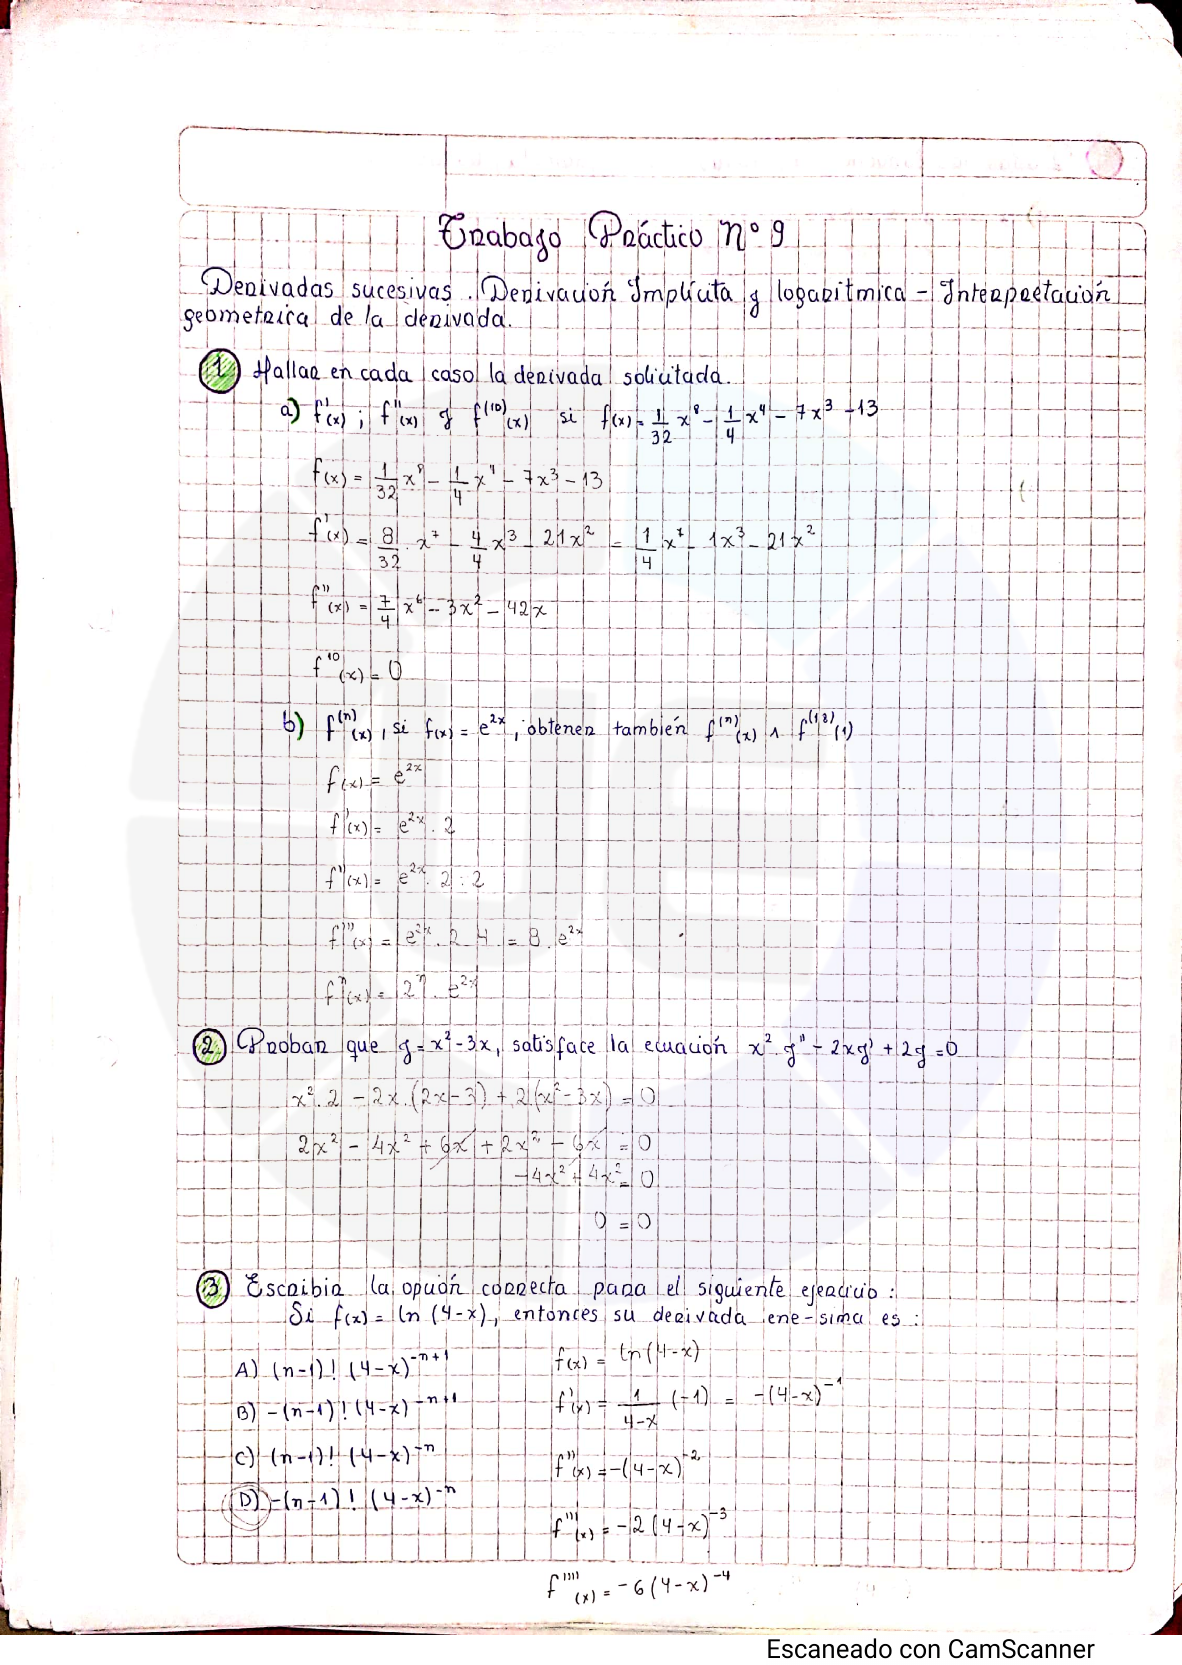 Trabajo Práctico Nº 9
Derivadas sucesivas. Derivación Implícita y logarítmica - Interpretación
geometrica de la derivada.
1 Hallar en cada caso la derivada solicitada.
a) f'(x) ; f''(x) y f^(10)(x) si f(x) = 1/32 x^8 - 1/4 x^4 - 7x^3 - 13
f(x) = 1/32 x^8 - 1/4 x^4 - 7x^3 - 13
f'(x) = 8/32 . x^7 - 4/4 x^3 - 21x^2 = 1/4 x^7 - 1x^3 - 21x^2
f''(x) = 7/4 x^6 - 3x^2 - 42x
f^10(x) = 0
b) f^(n)(x), si f(x) = e^2x, obtener también f^(n)(x) ∧ f^(18)(1)
f(x) = e^2x
f'(x) = e^2x . 2
f''(x) = e^2x . 2 . 2
f'''(x) = e^2x . 2 . 4 = 8 . e^2x
f^n(x) = 2^n . e^2x
2 Probar que y = x^2 - 3x, satisface la ecuación x^2 . y'' - 2xy' + 2y = 0
x^2 . 2 - 2x . (2x - 3) + 2 (x^2 - 3x) = 0
2x^2 - 4x^2 + 6x + 2x^2 - 6x = 0
-4x^2 + 4x^2 = 0
0 = 0
3 Escribir la opción correcta para el siguiente ejercicio :
Si f(x) = ln (4-x), entonces su derivada ene-sima es :
A) (n-1)! (4-x)^-n+1
B) -(n-1)! (4-x)^-n+1
C) (n-1)! (4-x)^-n
D) -(n-1)! (4-x)^-n
f(x) = ln (4-x)
f'(x) = 1/4-x (-1) = -(4-x)^-1
f''(x) = -(4-x)^-2
f'''(x) = -2 (4-x)^-3
f''''(x) = -6 (4-x)^-4
Escaneado con CamScanner